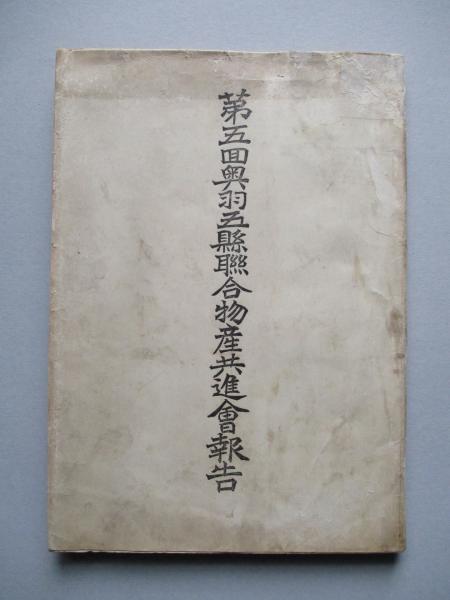 第五回奧羽五縣聯合物産共進會報告